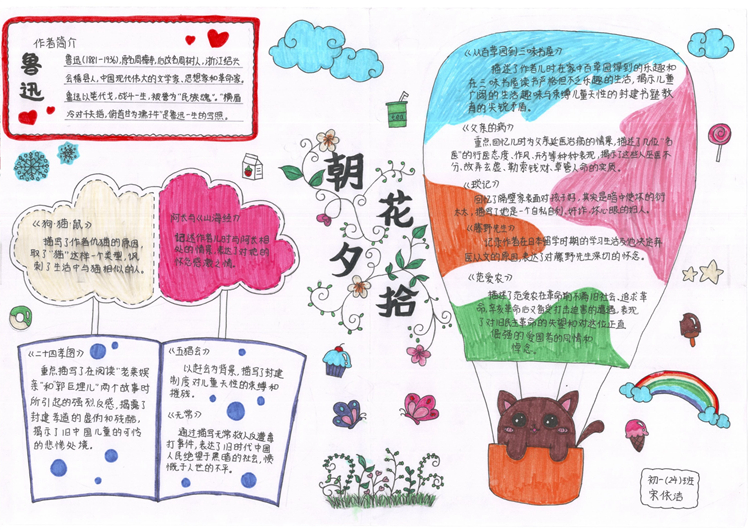 作者简介
鲁迅
鲁迅(1881-1936),原名周樟寿,后改名周树人,浙江绍兴
会稽县人,中国现代伟大的文学家、思想家和革命家,
鲁迅以笔代戈,战斗一生,被誉为“民族魂”。“横眉
冷对千夫指,俯首甘为孺子牛”是鲁迅一生的写照。
《狗·猫·鼠》
描写了作者仇猫的原因,
取了“猫”这样一个类型,讽
刺了生活中与猫相似的人。
阿长与《山海经》
描述作者儿时与阿长相
处的情景,表达了对她的
怀念感激之情。
《二十四孝图》
重点描写了在阅读“老莱娱
亲”和“郭巨埋儿”两个故事时
所引起的强烈反感,揭露了
封建孝道的虚伪和残酷,
揭示了旧中国儿童的可怜
的悲惨处境。
《五猖会》
以赶会为背景,描写了封建
制度对儿童天性的束缚和
摧残。
《无常》
通过描写无常救人反遭毒
打事件,表达了旧时代中国
人民绝望于黑暗的社会,愤
慨于人世的不平。
朝花夕拾
《从百草园到三味书屋》
描述了作者儿时在家中百草园得到的乐趣和
在三味书屋读书严格但不乏乐趣的生活,揭示儿童
广阔的生活趣味与束缚儿童天性的封建书塾教
育的尖锐矛盾。
《父亲的病》
重点回忆儿时为父亲延医治病的情景,描述了几位“名
医”的行医态度、作风、开方等种种表现,揭示了这些人巫医不
分、故弄玄虚、勒索钱财、草菅人命的实质。
《琐记》
回忆了隔壁家表面对孩子好,其实是暗中使坏的衍
太太,描写了她是一个自私自利,奸诈,坏心眼的妇人。
《藤野先生》
记录作者在日本留学时期的学习生活及他决定弃
医从文的原因,表达了对藤野先生深切的怀念。
《范爱农》
描述了范爱农在革命前不满旧社会、追求革
命,辛亥革命后又备受打击迫害的遭遇,表现
了对旧民主革命的失望和对这位正直
倔强的爱国者的同情和
悼念。
初一(24)班
宋依洁